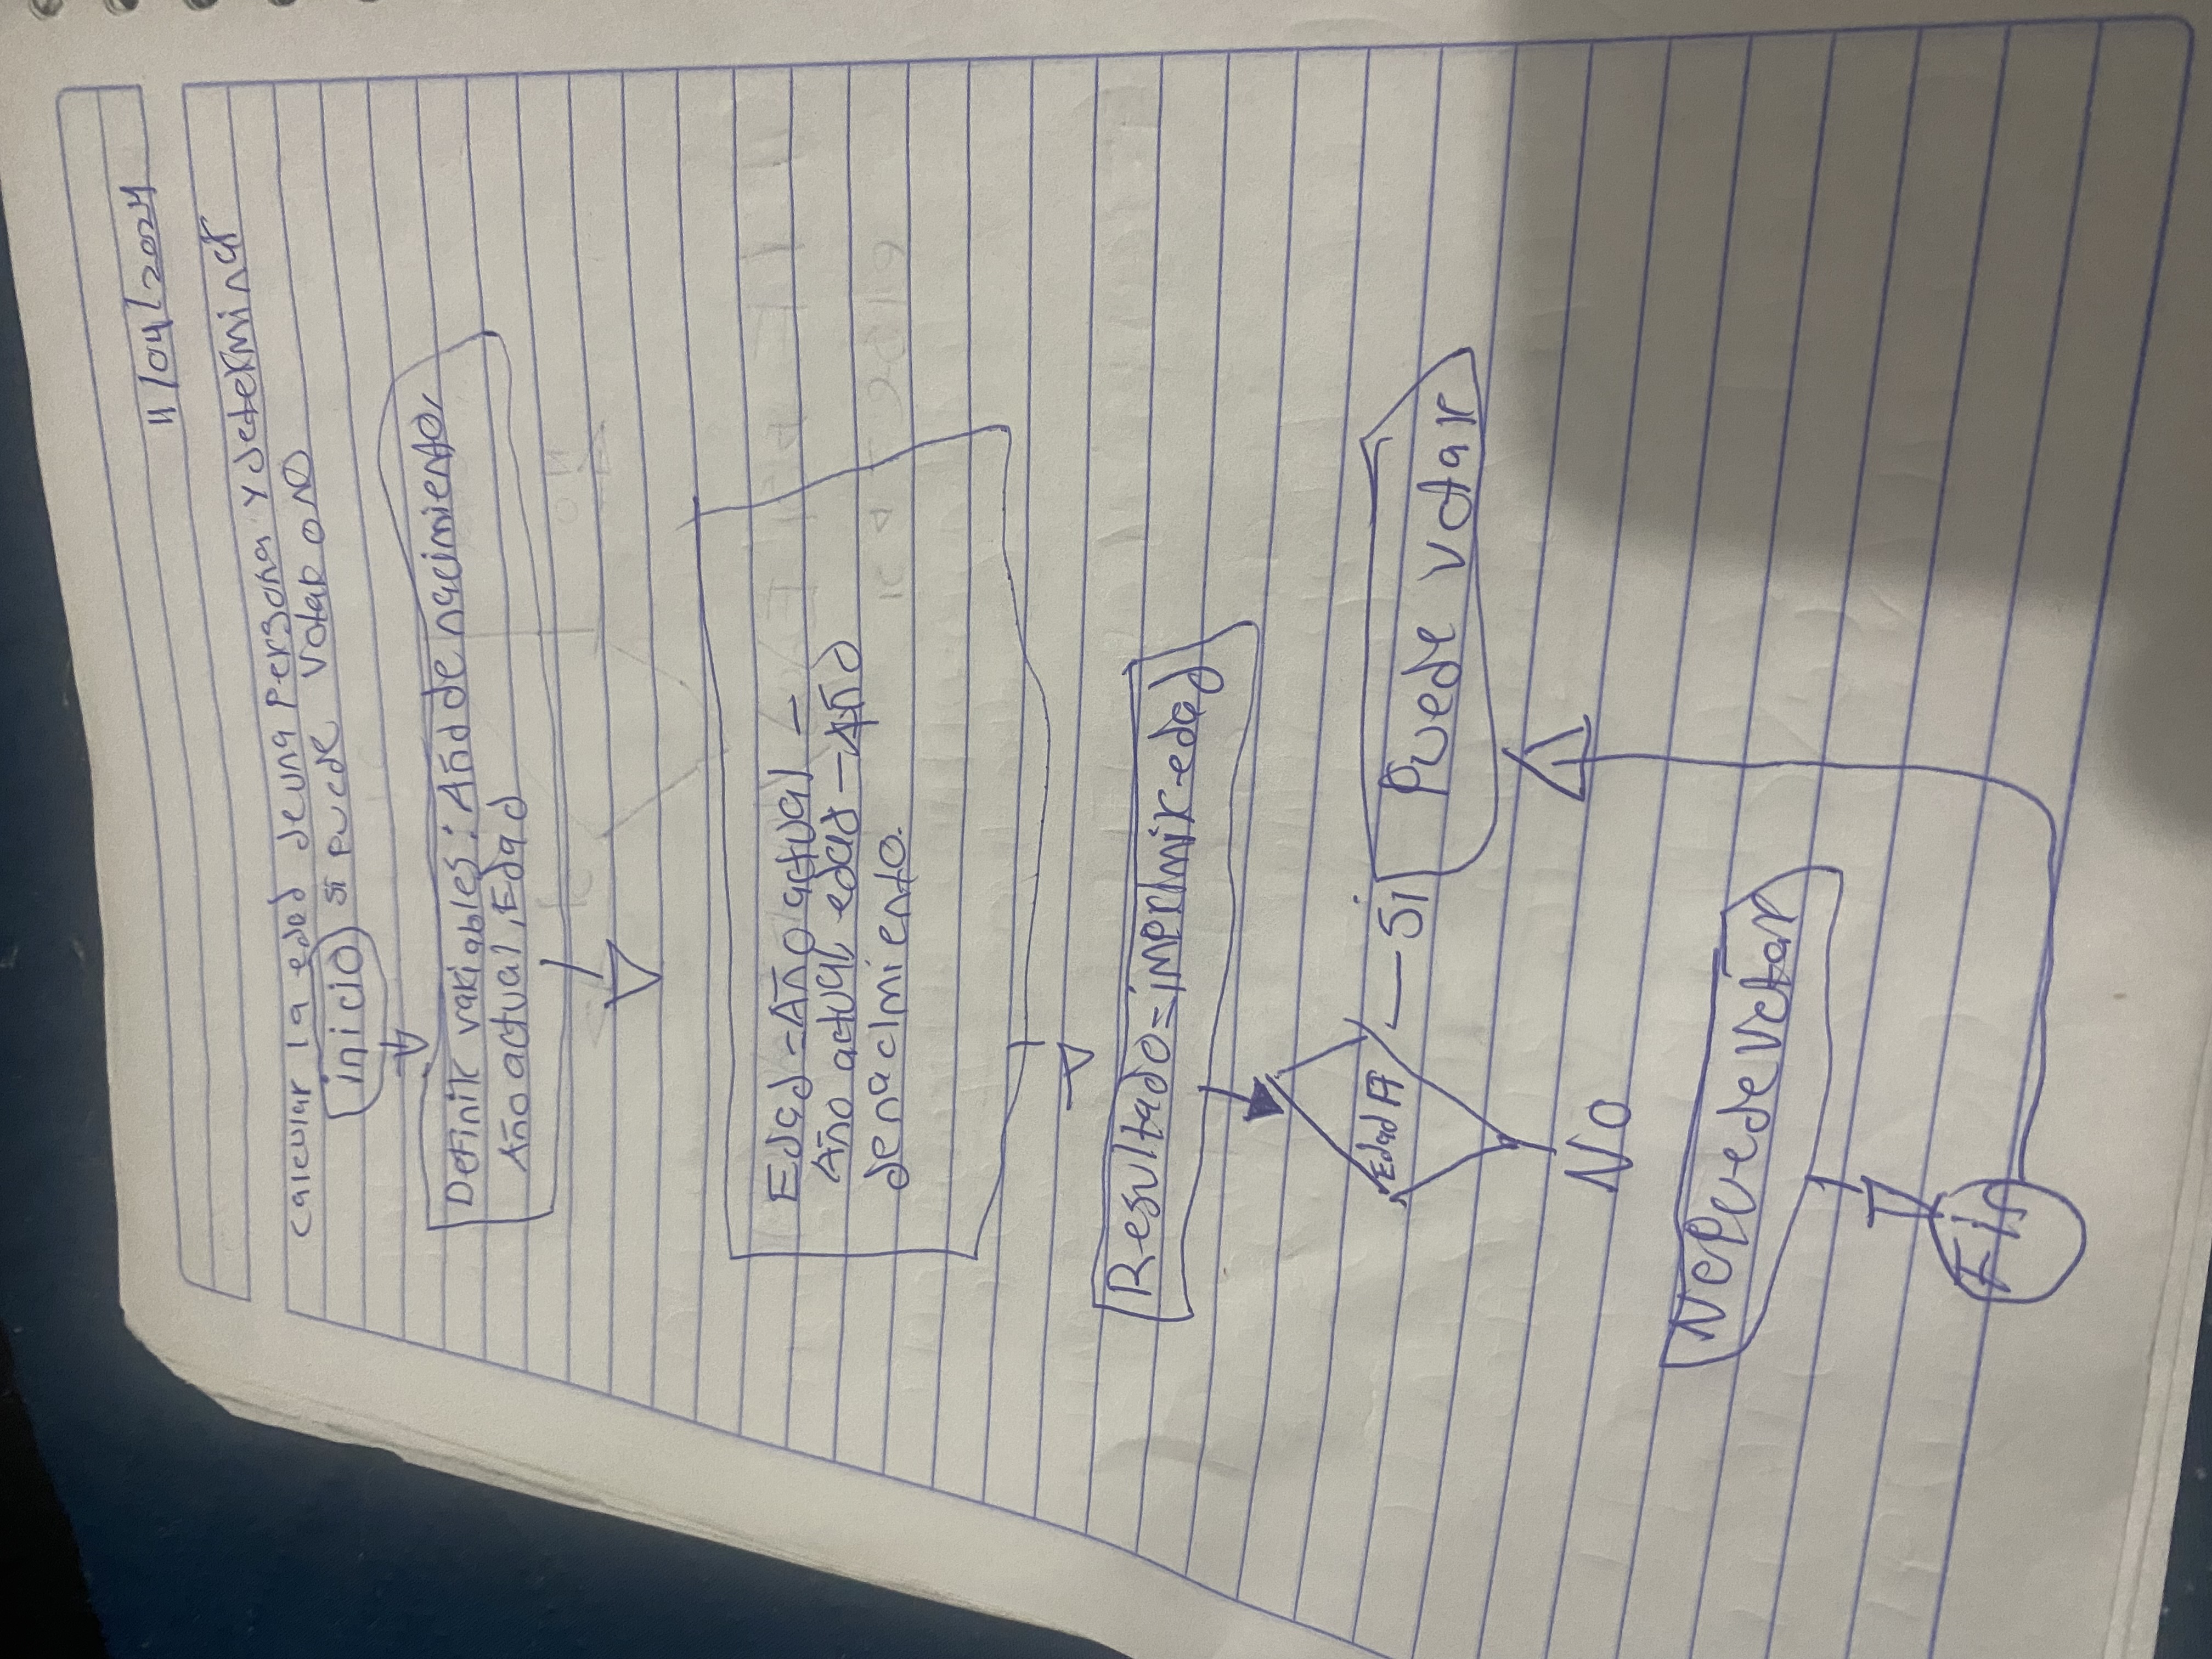 11/04/2024
calcular la edad de una Persona y determinar
si puede votar o no
inicio
Definir variables: Año de nacimiento,
Año actual, Edad
Edad = Año actual –
Año actual, edad – Año
de nacimiento.
Resultado = imprimir edad
Edad
Si
Puede votar
No
No Puede votar
Fin